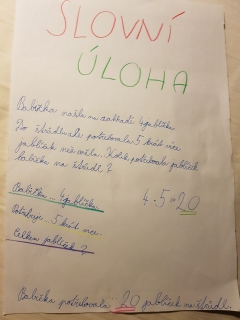 SLOVNÍ
ÚLOHA
Babička našla na zahradě 4 jablíčka
Do štrúdlu ale potřebovala 5 krát více
jablíček než našla. Kolik potřebovala jablíček
babička na štrúdl?
Babička ... 4 jablíčka
4 . 5 = 20
Potřebuje 5 krát více
Celkem jablíček ?
Babička potřebovala 20 jablíček na štrúdl.